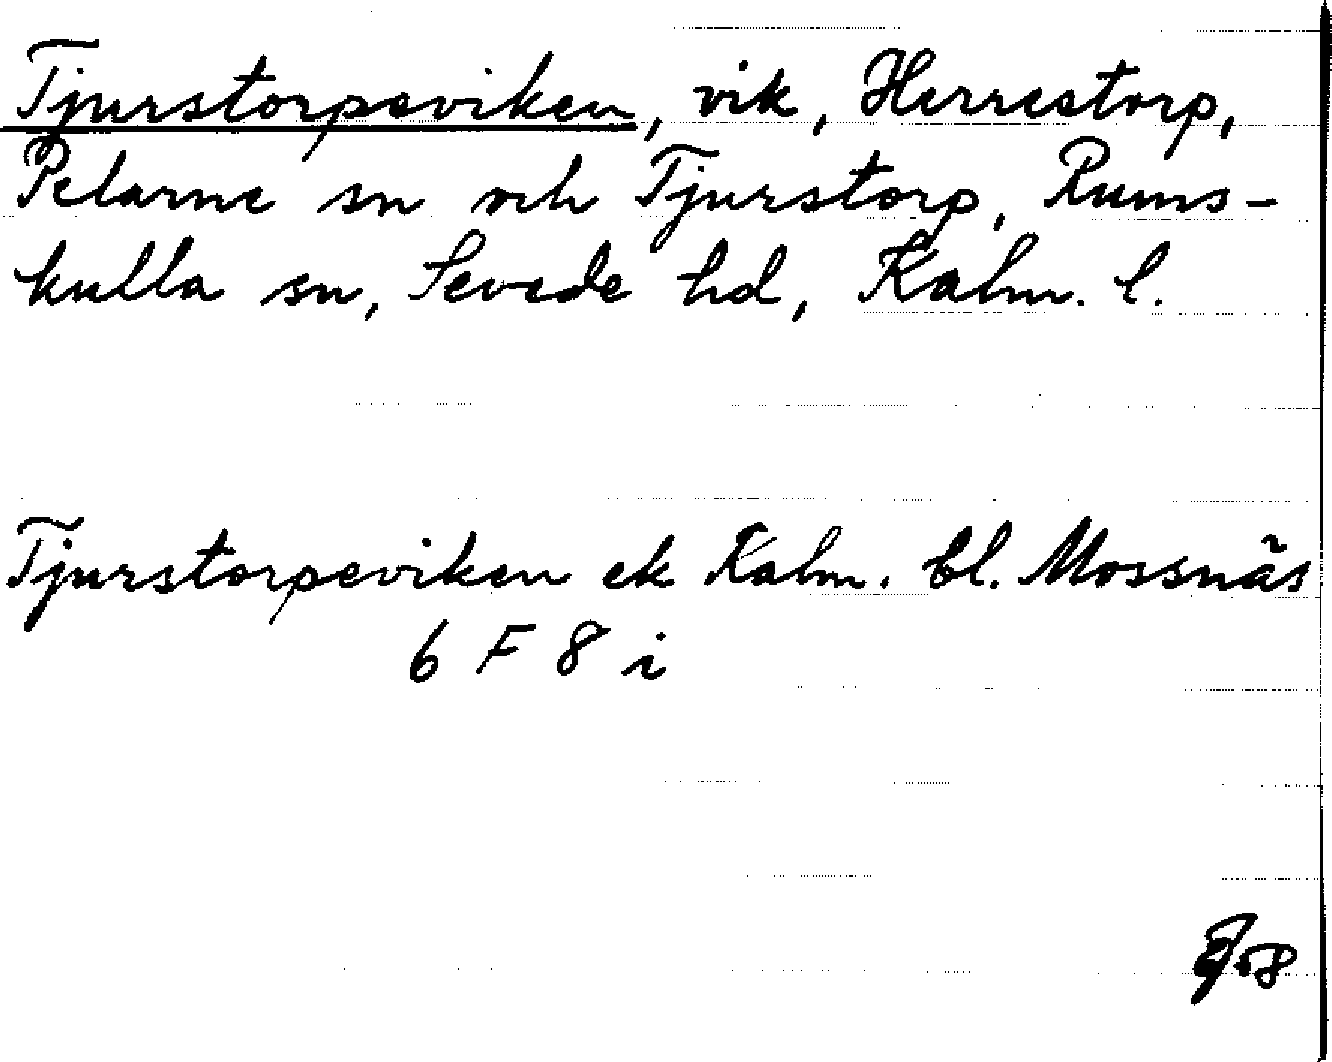 Tjurstorpeviken, vik, Herrestorp,
Pelarne sn och Tjurstorp, Rums-
kulla sn, Sevede hd, Kalm. l.
Tjurstorpeviken ek Kalm. bl. Mossnäs
6 F 8 i